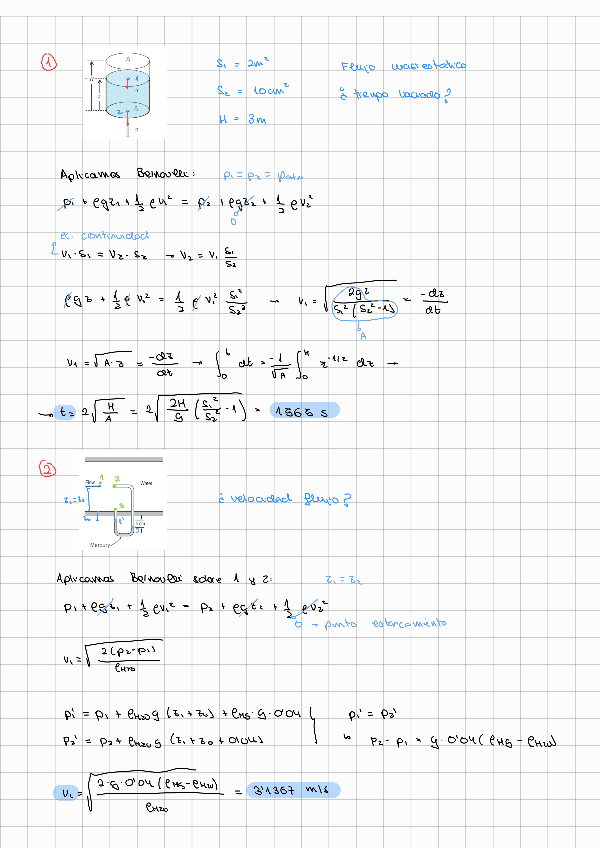 1
S₁ = 2m² Flujo
S₂ = 10cm² ¿ tiempo vaciado?
H = 3m
Aplicamos Bernoulli: p₁ = p₂ = patm
p₁ + ρgz₁ + 1/2 ρv₁² = p₂ + ρgz₂ + 1/2 ρv₂²
0
ec. continuidad
v₁·S₁ = v₂·S₂ → v₂ = v₁ S₁/S₂
ρgz + 1/2 ρ v₁² = 1/2 ρ v₁² S₁²/S₂² → v₁ = √
= -dz/dt
A
v₁ = √A·z = -dz/dt → ∫₀ᵗ dt = -1/√A ∫₀ᴴ z^-1/2 dz →
→ t = 2√H/A = 2√2H/g (S₁²/S₂² - 1) = 1565 s
2
Flow 1 2 Water
z₁=z₂ 3
z₀
1' 2'
Mercury
¿ velocidad flujo?
Aplicamos Bernoulli sobre 1 y 2: z₁ = z₂
p₁ + ρgz₁ + 1/2 ρv₁² = p₂ + ρgz₂ + 1/2 ρv₂²
0 → punto estancamiento
v₁ = √2(p₂-p₁)/ρH₂O
p₁' = p₁ + ρH₂O g (z₁+z₀) + ρHg·g·0'04 p₁' = p₂'
p₂' = p₂ + ρH₂O g (z₁+z₀+0'04) p₂-p₁ = g·0'04 (ρHg - ρH₂O)
v₁ = √2·g·0'04 (ρHg-ρH₂O)/ρH₂O = 3'1367 m/s